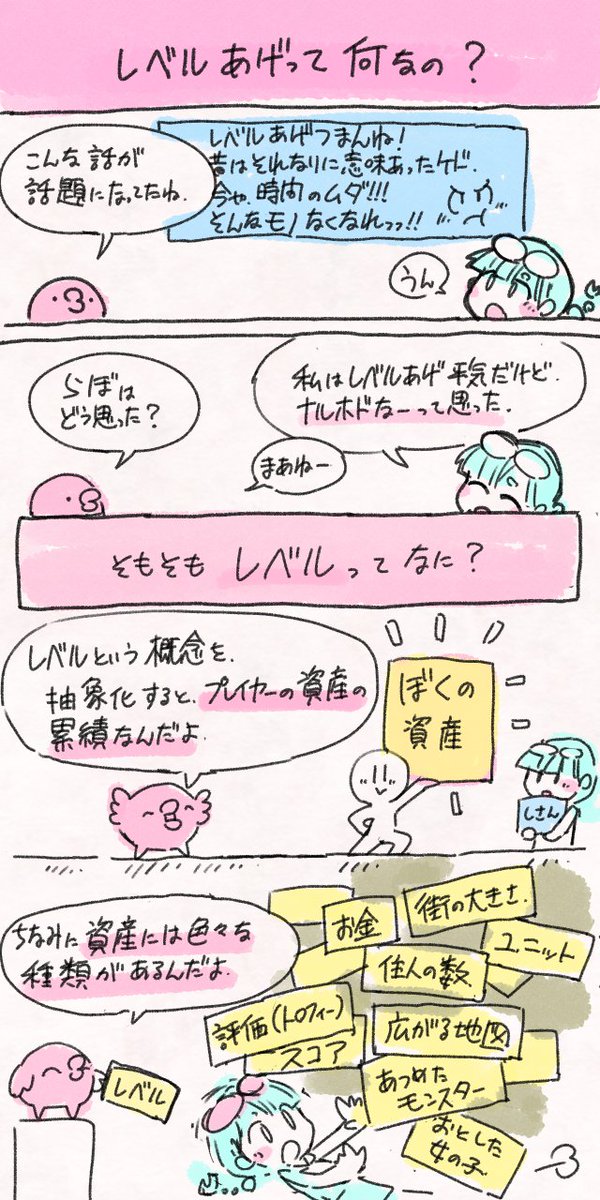 レベルあげって何なの？
レベルあげつまんね！
昔はそれなりに意味あったケド、
今や、時間のムダ!!!
そんなモノなくなれっっ!!
こんな話が
話題になってたね。
うん
らぼは
どう思った？
私はレベルあげ平気だけど、
ナルホドなーって思った。
まあねー
そもそもレベルってなに？
レベルという概念を、
抽象化すると、プレイヤーの資産の
累積なんだよ
ぼくの
資産
しさん
ちなみに資産には色々な
種類があるんだよ。
お金
街の大きさ
ユニット
住人の数
評価(トロフィー)
スコア
広がる地図
あつめた
モンスター
おとした
女の子
レベル